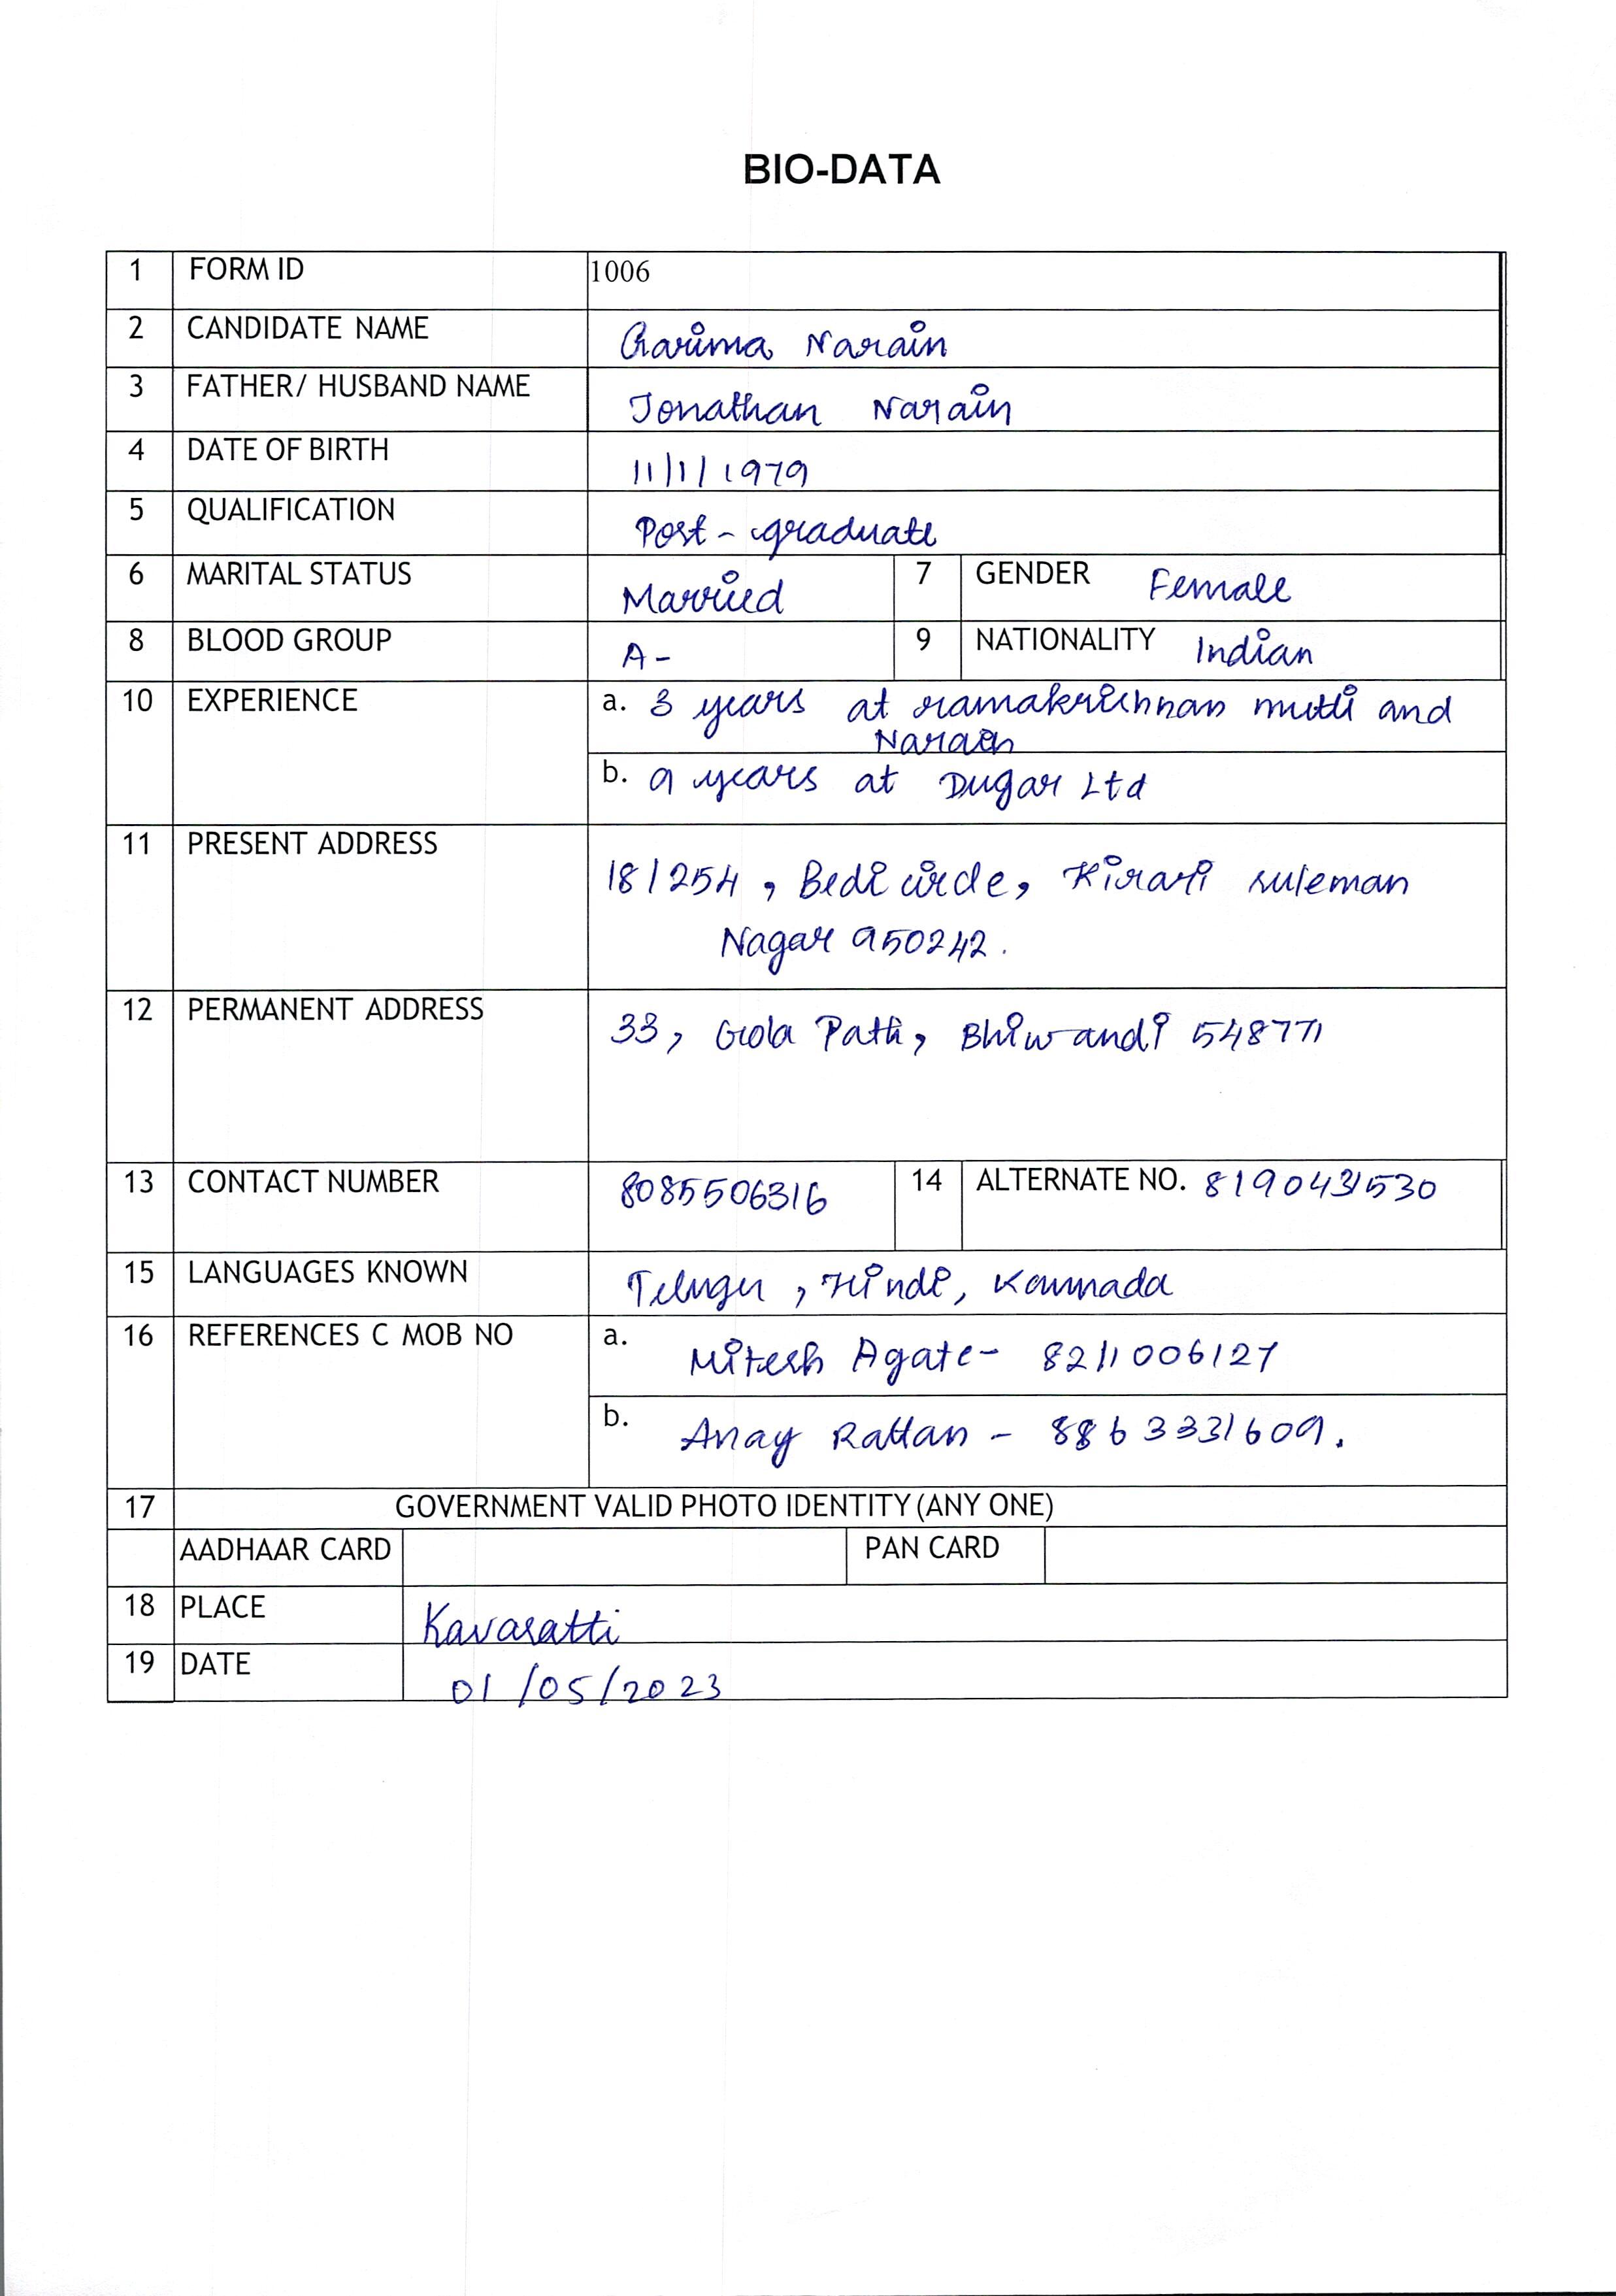 BIO-DATA
1 FORM ID 1006
2 CANDIDATE NAME Garima Narain
3 FATHER/ HUSBAND NAME Jonathan Narain
4 DATE OF BIRTH 11/1/1979
5 QUALIFICATION Post-graduate
6 MARITAL STATUS Married 7 GENDER Female
8 BLOOD GROUP A- 9 NATIONALITY Indian
10 EXPERIENCE a. 3 years at ramakrishnan mutti and
Narain
b. 9 years at Dugar Ltd
11 PRESENT ADDRESS
18/254, Bedi circle, Kirari suleman
Nagar 950242.
12 PERMANENT ADDRESS 33, Gola Path, Bhiwandi 548771
13 CONTACT NUMBER 8085506316 14 ALTERNATE NO. 8190431530
15 LANGUAGES KNOWN Telugu, Hindi, Kannada
16 REFERENCES C MOB NO a. Mitesh Agate- 8211006127
b. Anay Rattan - 8863331609.
17 GOVERNMENT VALID PHOTO IDENTITY (ANY ONE)
AADHAAR CARD PAN CARD
18 PLACE Kavaratti
19 DATE 01/05/2023